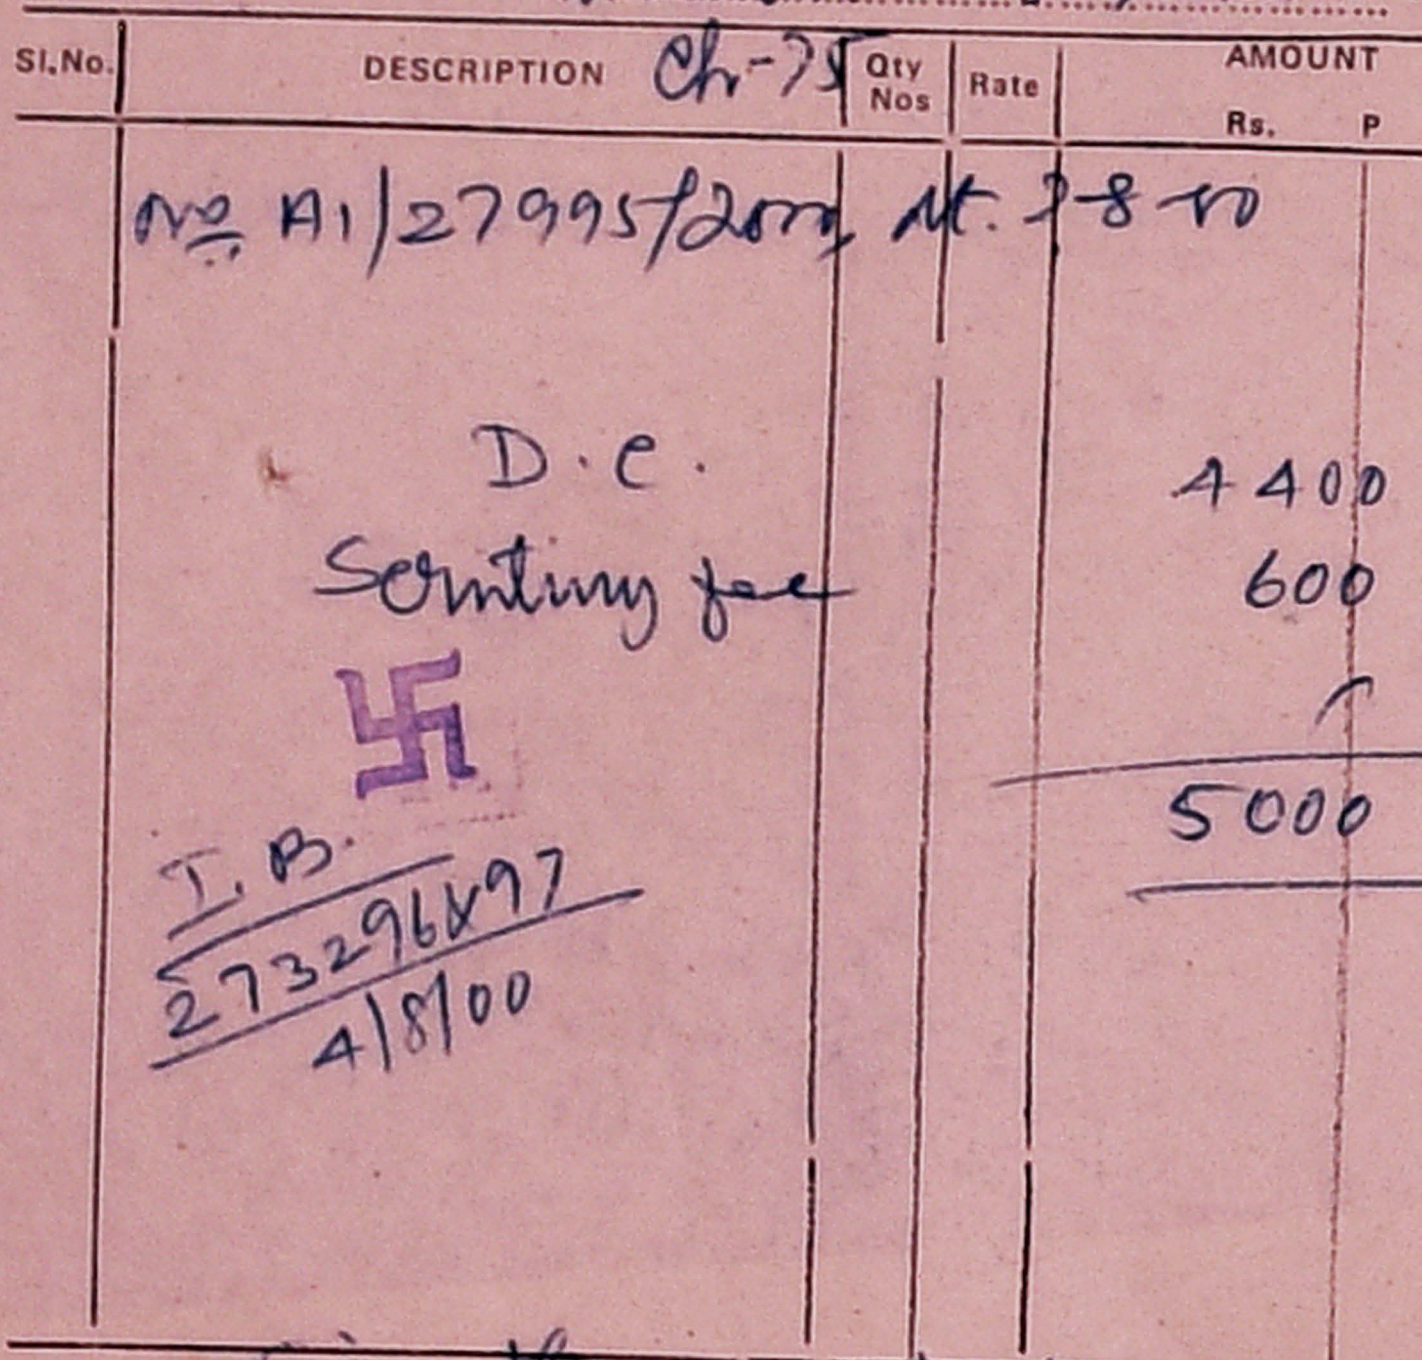 Sl.No. DESCRIPTION Ch-75 Qty Nos Rate AMOUNT Rs. P
No A1/27995/2000, dt. 3-8-00
D.C. 4400
Scrutiny fee 600
5000
I.B.
273296 & 97
4/8/00